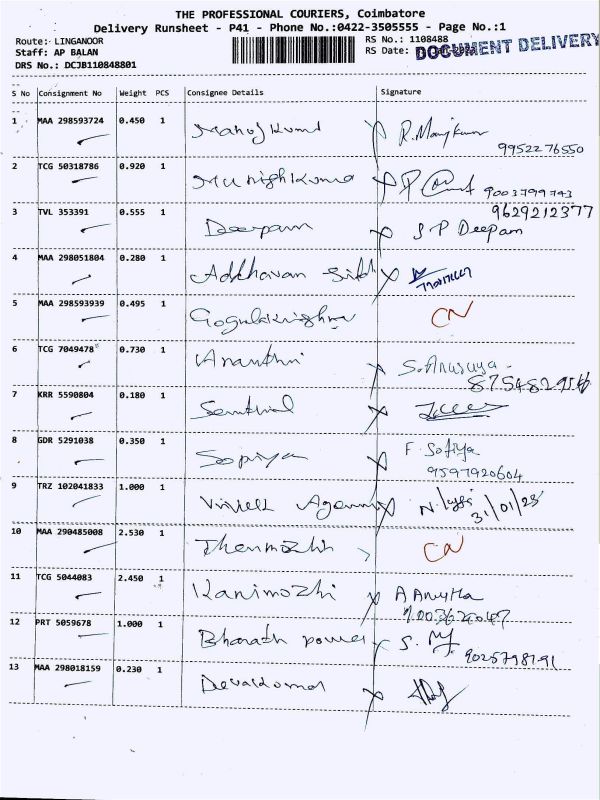 THE PROFESSIONAL COURIERS, Coimbatore
Delivery Runsheet - P41 - Phone No.:0422-3505555 - Page No.:1
Route: LINGANOOR
RS No.: 1108488
Staff: AP BALAN
RS Date:
DOCUMENT DELIVERY
DRS No.: DCJB110848801
S No Consignment No Weight PCS Consignee Details Signature
1 MAA 298593724 0.450 1 Manojkumar R. Manojkumar
9952276550
2 TCG 50318786 0.920 1 Munishkumar
9003799743
9629212377
3 TVL 353391 0.555 1 Deepam S P Deepam
4 MAA 298051804 0.280 1 Adkhavan
5 MAA 298593939 0.495 1 Gogulakrishna CN
6 TCG 7049478 0.730 1 Ananthi S. Anusuya
7 KRR 5590804 0.180 1 Senthial
8 GDR 5291038 0.350 1 Sopiya F. Sofiya
9597920604
9 TRZ 102041833 1.000 1 Vivek Agenni
31/01/23
10 MAA 290485008 2.530 1 Thenmozhi CN
11 TCG 5044083 2.450 1 Kanimozhi A Anutta
12 PRT 5059678 1.000 1 Bharath power
9025798191
13 MAA 298018159 0.230 1 Devakumar